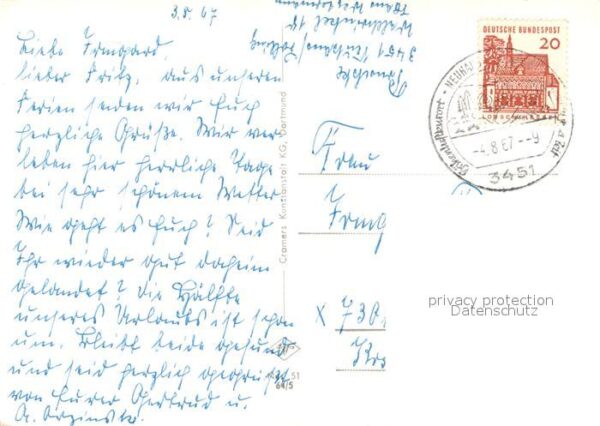 3.8.67
Liebe Irmgard,
lieber Fritz, aus unseren
Ferien senden wir Euch
herzliche Grüße. Wir ver
leben hier herrliche Tage
bei sehr schönem Wetter
Wie geht es Euch? Seid
Ihr wieder gut daheim
gelandet? Die Hälfte
unseres Urlaubs ist schon
um. Bleibt beide gesund
und seid herzlich gegrüßt
von Eurer Gertrud u.
3451
Cramers Kunstanstalt KG, Dortmund
51
64/5
DEUTSCHE BUNDESPOST
20
LORSCH/HESSEN
-4.8.67--9
3451
Frau
Irmg
x 730
privacy protection
Datenschutz